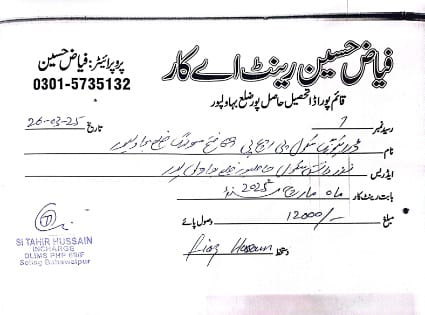 فیاض حسین رینٹ اے کار
پروپرائیٹر: فیاض حسین
0301-5735132
قائم پور اڈا تحصیل حاصل پور ضلع بہاولپور
رسید نمبر 1 تاریخ 26-03-25
نام ڈرائیونگ سکول پی ایچ پی ضلع بہاولپور
ایڈریس ڈرائیونگ سکول
بابت رینٹ کار ماہ مارچ 2025
مبلغ 12000/- وصول پائے
دستخط Fiaz Hussain
SI TAHIR HUSSAIN
INCHARGE
DLIMS PHP
Bahawalpur